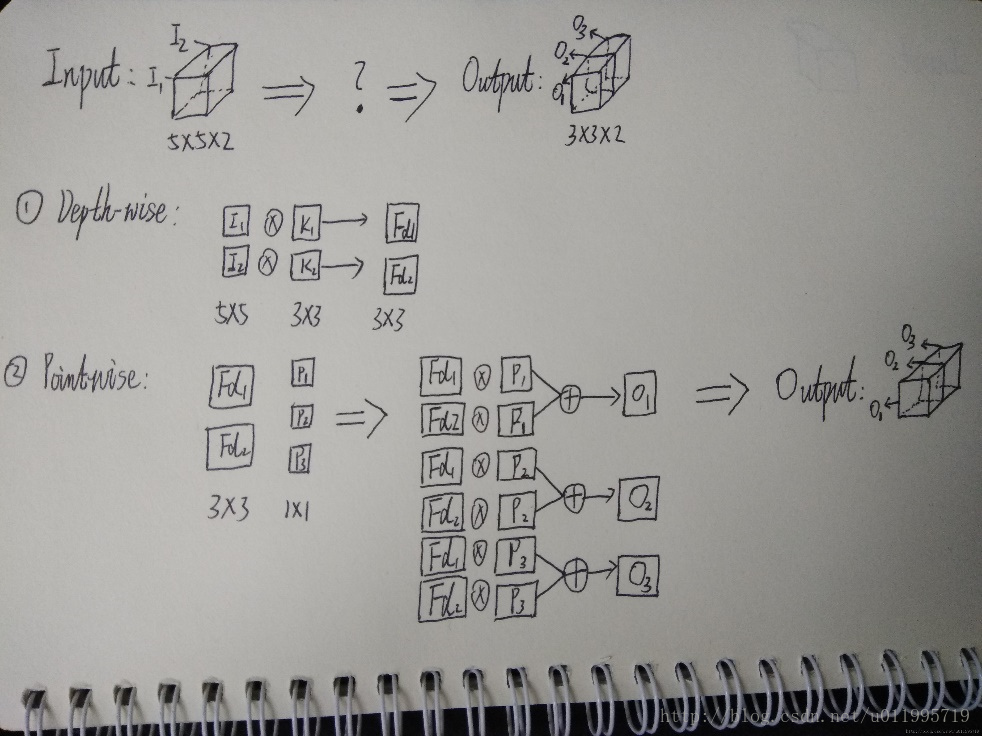 Input: I₁ I₂ ⇒ ? ⇒ Output: O₁ O₂ O₃
5X5X2 3X3X2
① Depth-wise:
I₁ ⊗ K₁ → Fd₁
I₂ ⊗ K₂ → Fd₂
5X5 3X3 3X3
② Pointwise:
Fd₁ P₁
Fd₂ P₂
P₃
3X3 1X1
⇒
Fd₁ ⊗ P₁
Fd2 ⊗ P₁
⊕ → O₁
Fd₁ ⊗ P₂
Fd₂ ⊗ P₂
⊕ → O₂
Fd₁ ⊗ P₃
Fd₂ ⊗ P₃
⊕ → O₃
⇒ Output: O₁ O₂ O₃
http://blog.csdn.net/u011995719